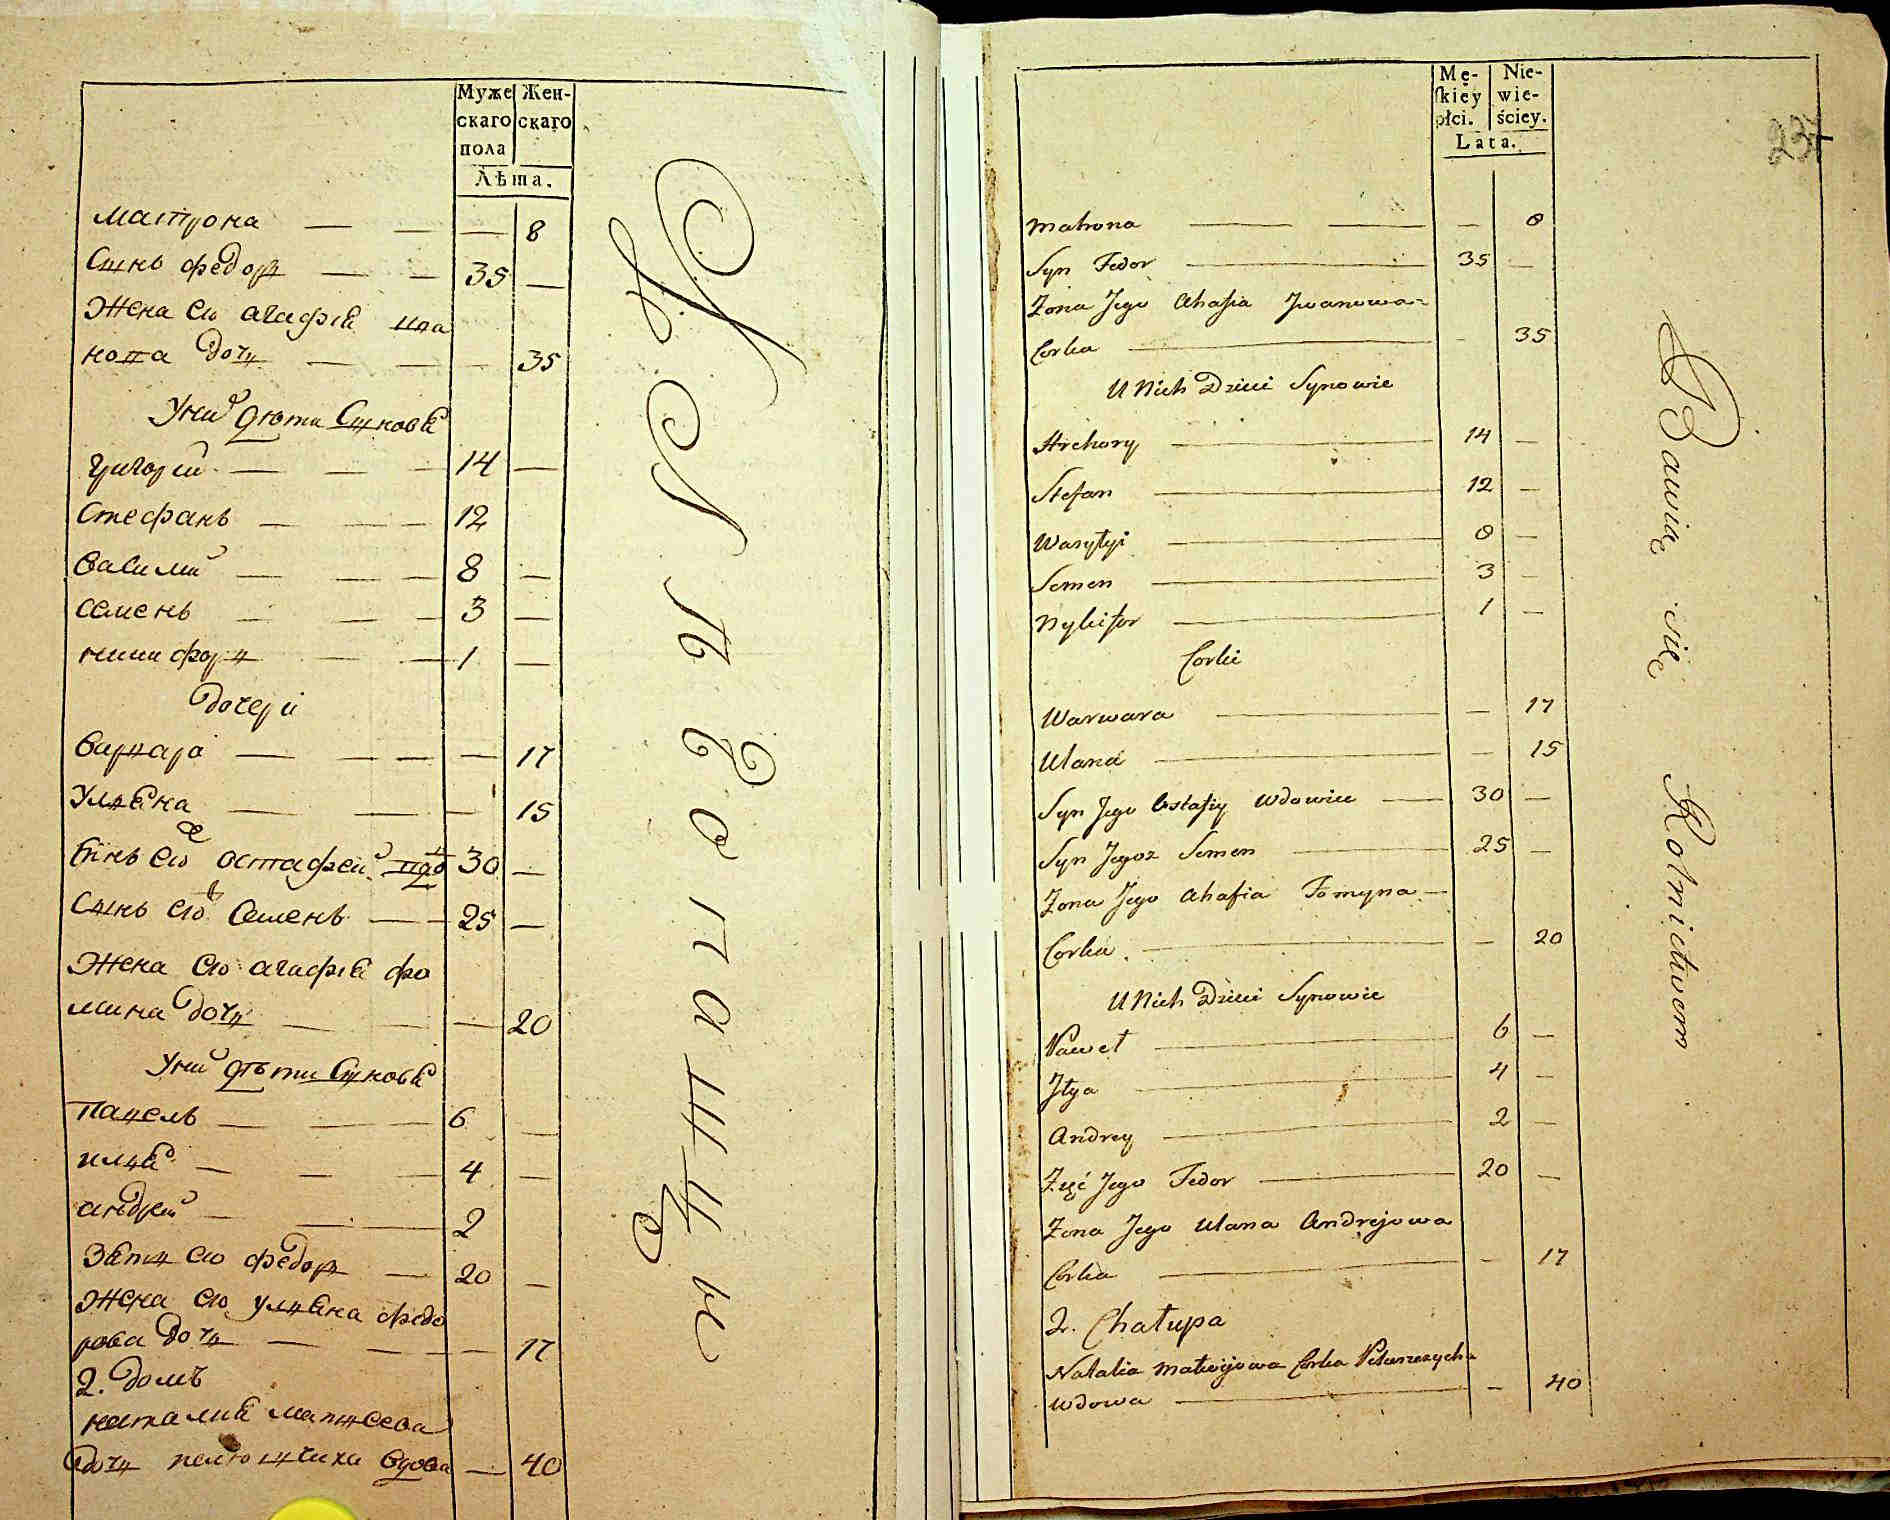 Муже
скаго
пола
Жен-
скаго
Лѣта.
Матрона — — — 8
Сынъ Федоръ — — 35 —
Жена его агафія ива
нова дочь — — — 35
У них дѣти Сыновя
григорий — — — 14 —
Стефанъ — — — 12
Василий — — — 8 —
семенъ — — — 3 —
никифоръ — — 1 —
дочери
Варвара — — — — 17
Ульяна — — — 15
Сынъ его остафей вдов 30 —
Сынъ его Семенъ — — 25 —
Жена его агафія фо
мина дочь — — — 20
У них дѣти Сыновя
Павелъ — — 6 —
илья — — — 4 —
андрей — — 2
Зять его федоръ — 20 —
Жена его ульяна федо
рова дочь — — — 17
2. домъ
наталия матвеева
дочь вдова — 40
Хлебопашцы
Mę-
skiey
płci.
Nie-
wie-
ściey.
Lata.
237
Matrona — — — 8
Syn Fedor — 35 —
Żona Jego Ahafia Jwanowa-
Corka — — 35
U Nich Dzieci Synowie
Hrehory — 14 —
Stefan — 12 —
Wasylyi — 8 —
Semen — 3 —
Nykifor — 1 —
Corki
Warwara — — 17
Ulana — — 15
Syn Jego Ostafiy Wdowiec — 30 —
Syn Jegoz Semen — 25 —
Żona Jego Ahafia Fomyna —
Corka — — 20
U Nich Dzieci Synowie
Paweł — 6 —
Jłya — 4 —
Andrey — 2 —
Zięć Jego Fedor — 20 —
Żona Jego Ulana Andrejowa
Corka — — 17
2. Chałupa
Natalia Matwijowa Corka
Wdowa — — 40
Bawią się Rolnictwem